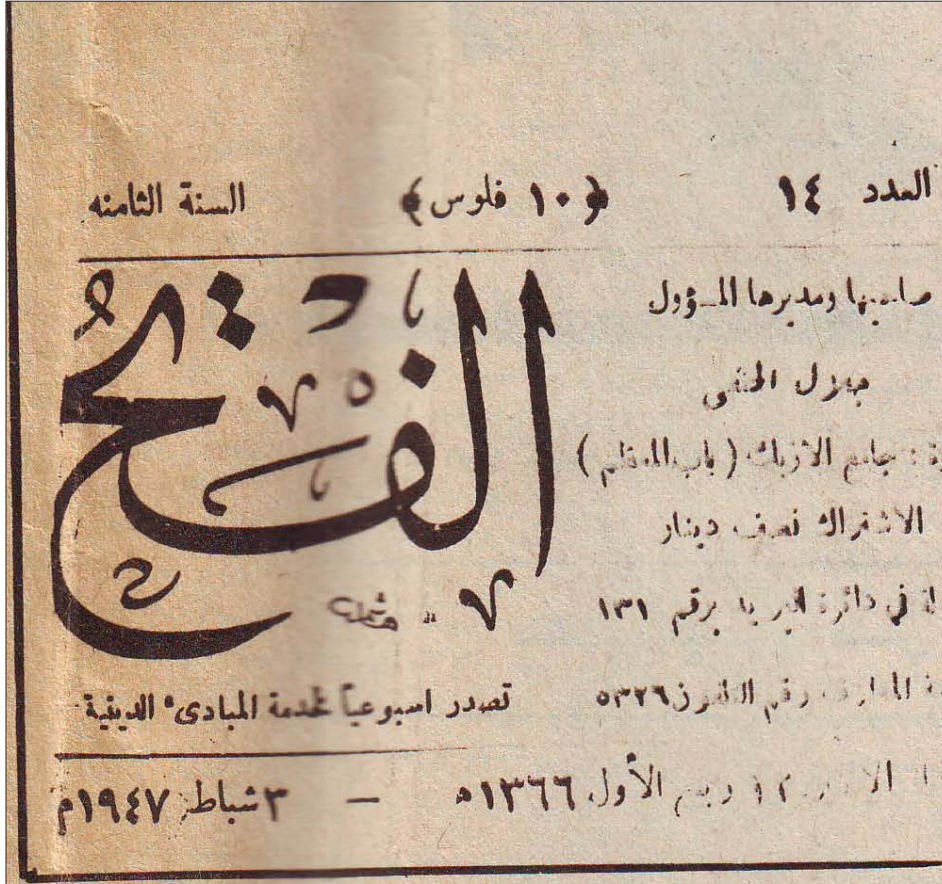 العدد ١٤ ﴿١٠ فلوس﴾ السنة الثامنه
صاحبها ومديرها المسؤول
جلال الحنفي
جامع الازبك (باب المعظم)
الاشتراك نصف دينار
في دائرة البريد برقم ١٣١
رقم التلفون ٥٣٢٦
الفتح
تصدر اسبوعياً لخدمة المبادىء الدينية
ربيع الأول ١٣٦٦ﻫ — ٣ شباط ١٩٤٧م